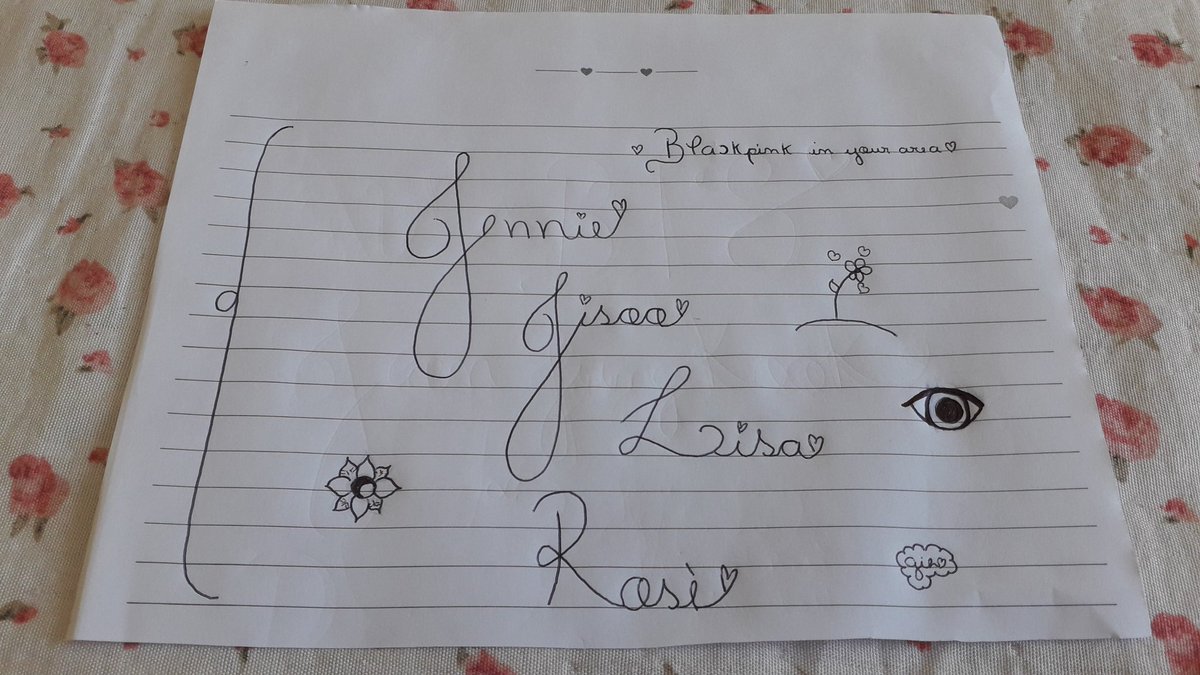 Blackpink in your area
Jennie
Jisoo
Lisa
Rosè